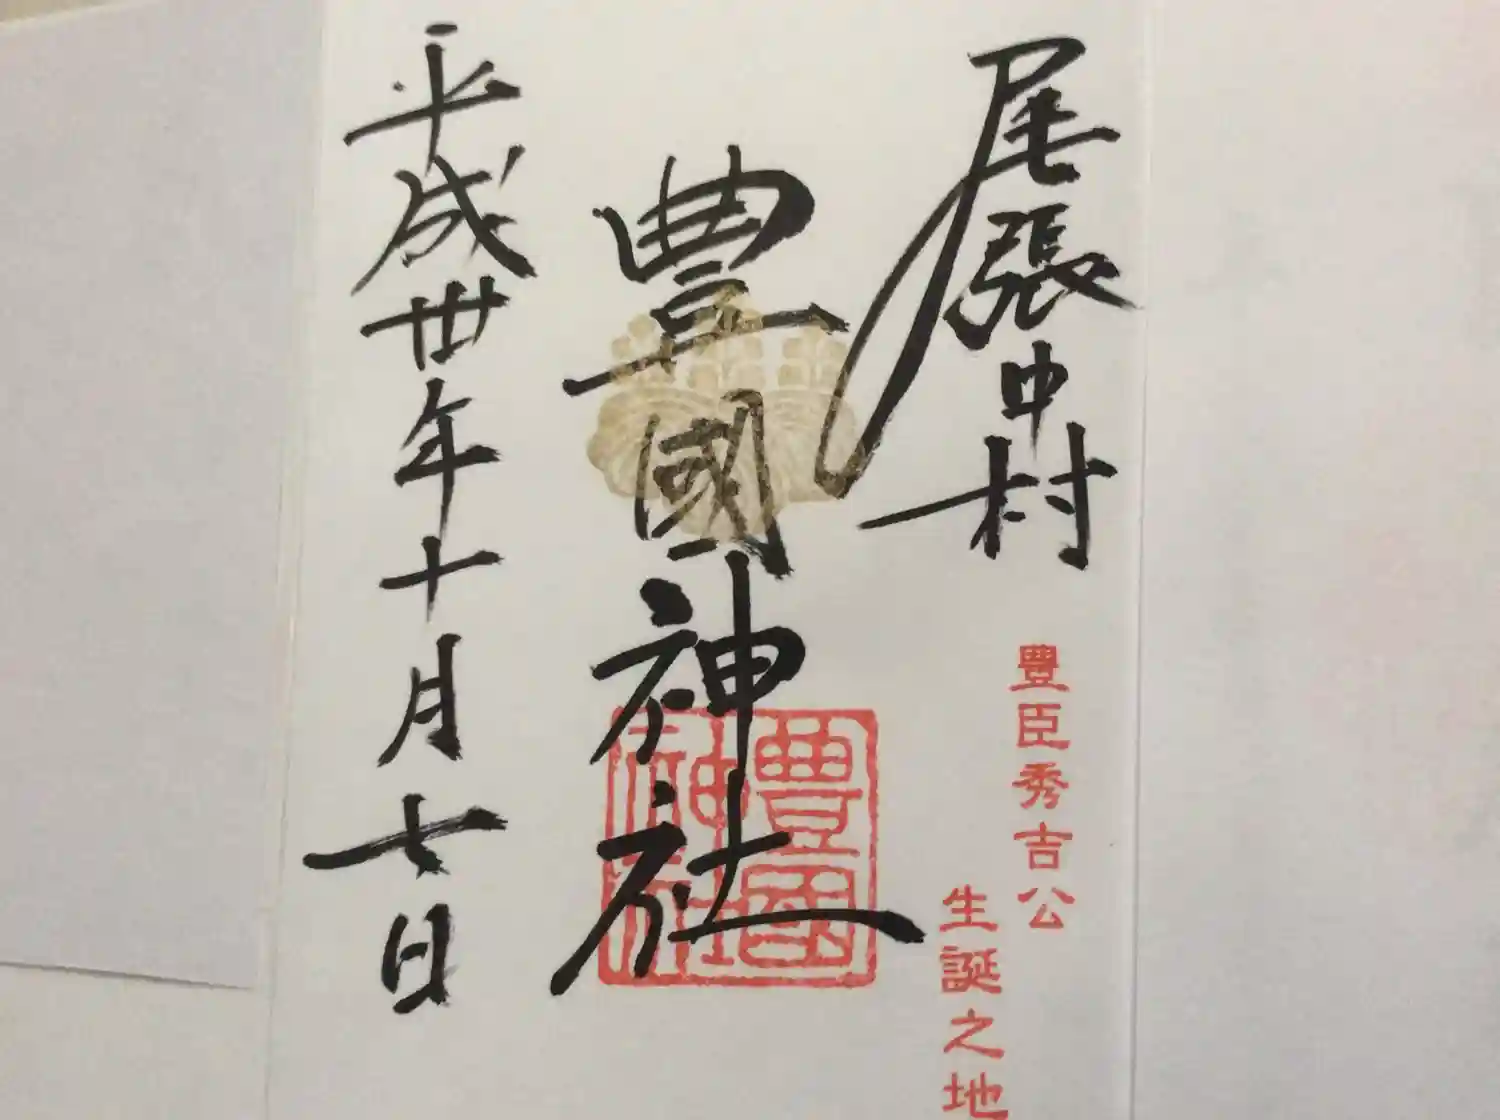 尾張中村
豊臣秀吉公
生誕之地
豊國神社
豊國
神社
平成丗年十月七日